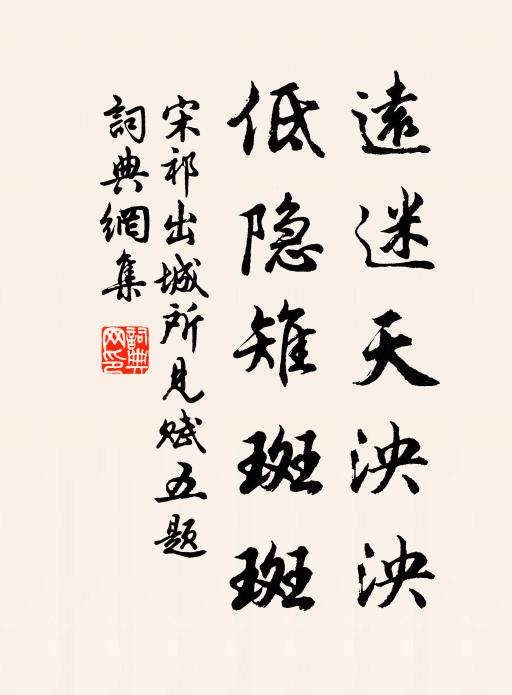 遠迷天泱泱
低隐雉斑斑
宋祁出城所見赋五题
詞典網集
詞典
网印